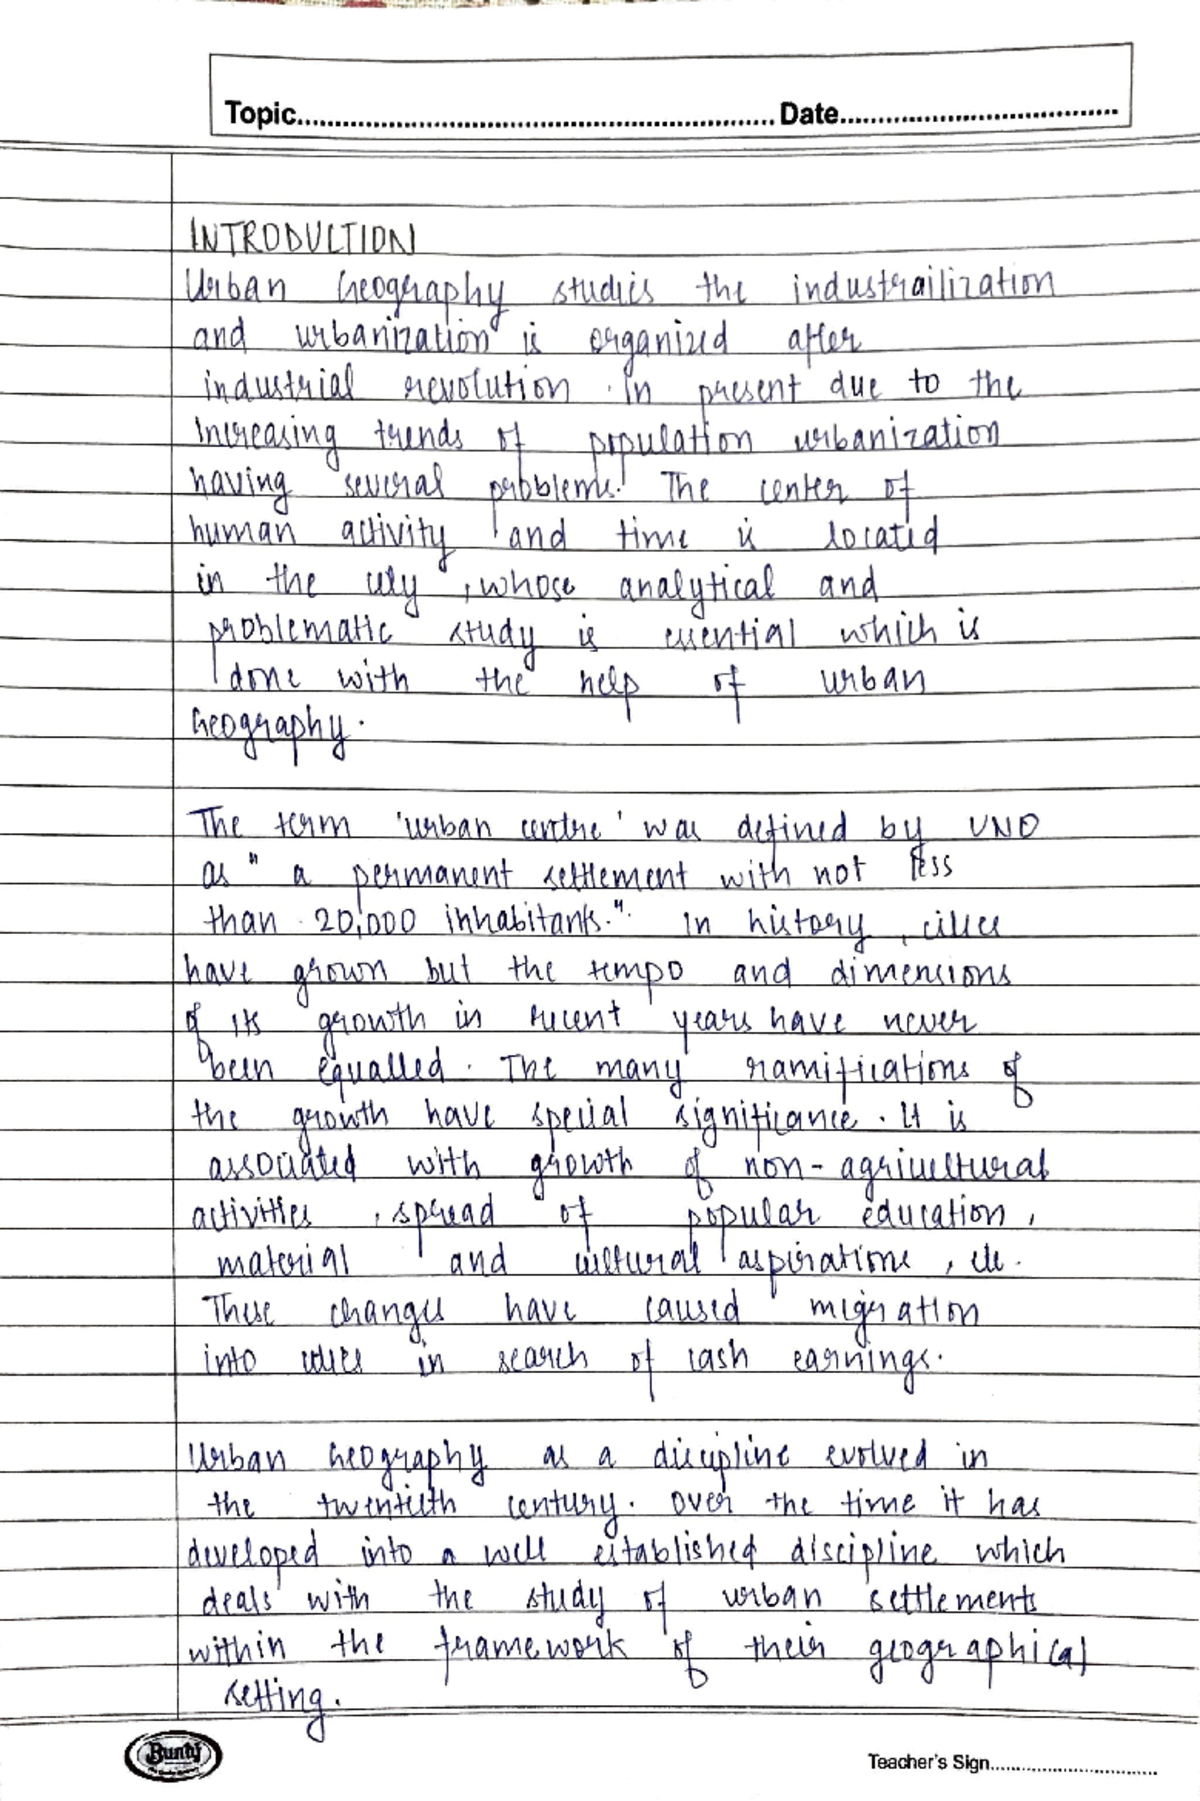 Topic.......... Date..........
INTRODUCTION
Urban Geography studies the industrailization
and urbanization is organized after
industrial revolution. In present due to the
increasing trends of population urbanization
having several problems. The center of
human activity and time is located
in the city, whose analytical and
problematic study is essential which is
done with the help of urban
Geography.
The term 'urban centre' was defined by UNO
as "a permanent settlement with not less
than 20,000 inhabitants." In history, cities
have grown but the tempo and dimensions
of its growth in recent years have never
been equalled. The many ramifications of
the growth have special significance. It is
associated with growth of non-agricultural
activities, spread of popular education,
material and cultural aspirations, etc.
These changes have caused migration
into cities in search of cash earnings.
Urban Geography as a discipline evolved in
the twentieth century. Over the time it has
developed into a well established discipline which
deals with the study of urban settlements
within the framework of their geographical
setting.
Bunty
Teacher's Sign..........